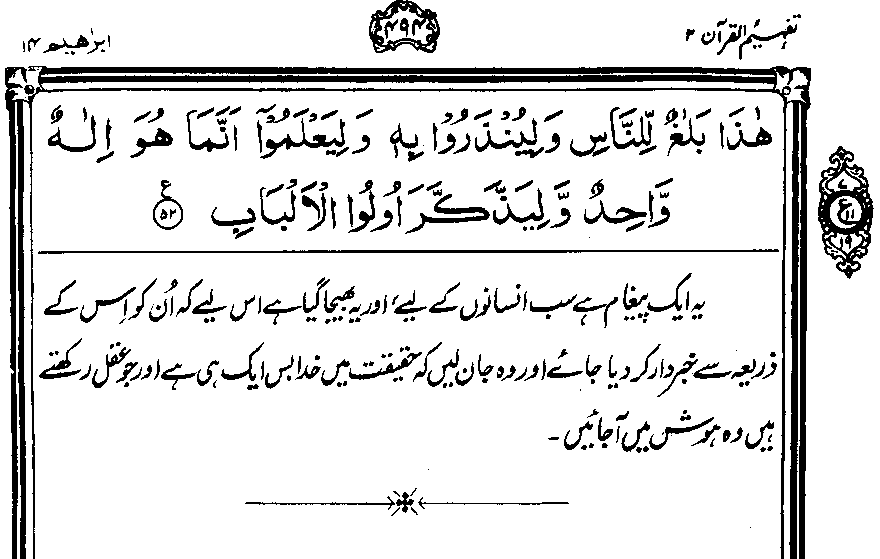 تفہیم القرآن ۲
۴۹۴
ابرٰھیم ۱۴
هٰذَا بَلٰغٌ لِّلنَّاسِ وَلِيُنْذَرُوْا بِهٖ وَلِيَعْلَمُوْٓا اَنَّمَا هُوَ اِلٰهٌ
وَّاحِدٌ وَّلِيَذَّكَّرَ اُولُوا الْاَلْبَابِ ۵۲ ع
۷
ع
۱۱
۱۹
یہ ایک پیغام ہے سب انسانوں کے لیے، اور یہ بھیجا گیا ہے اس لیے کہ اُن کو اِس کے
ذریعہ سے خبردار کر دیا جائے اور وہ جان لیں کہ حقیقت میں خدا بس ایک ہی ہے اور جو عقل رکھتے
ہیں وہ ہوش میں آ جائیں۔